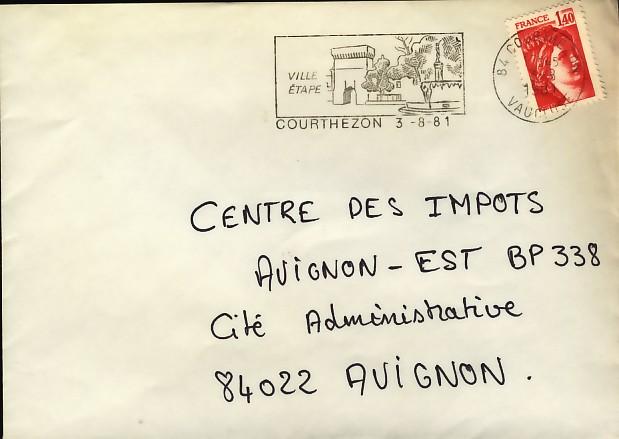 FRANCE 1,40
VILLE
ÉTAPE
COURTHEZON 3-8-81
CENTRE DES IMPOTS
AVIGNON-EST BP 338
Cité Administrative
84022 AVIGNON.